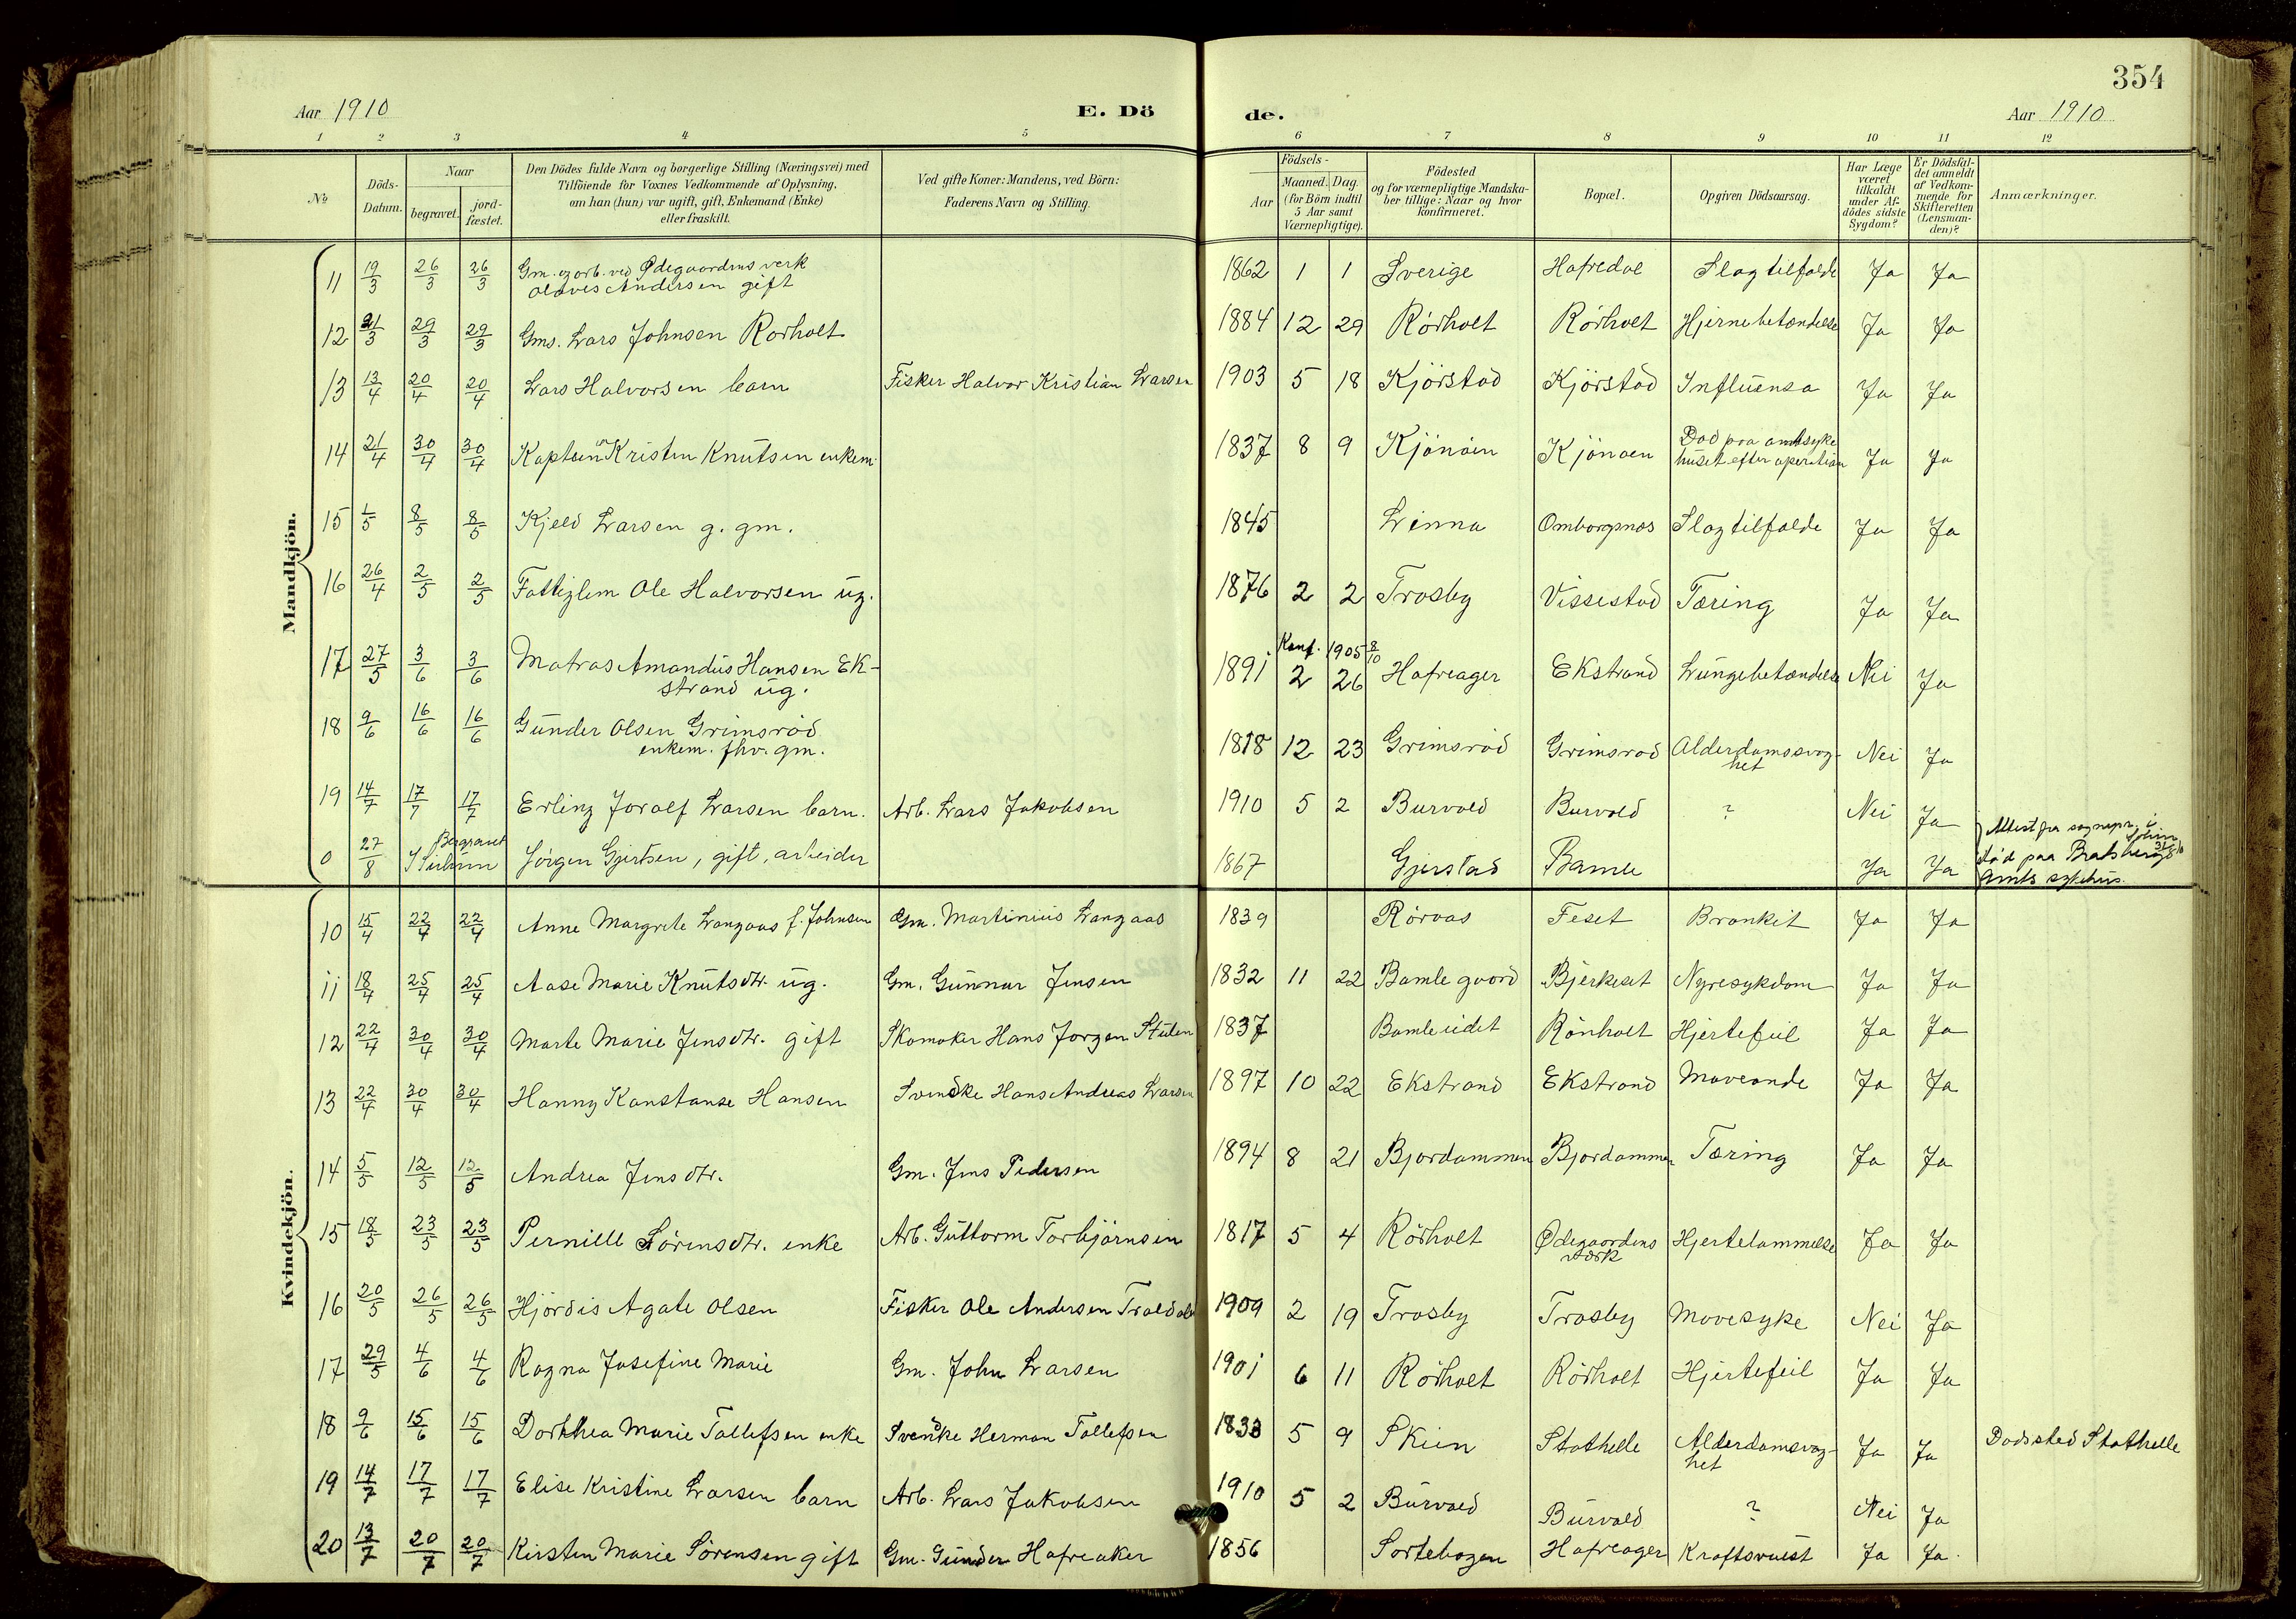 354
Aar 1910 E. Dö de. Aar 1910
1 2 3 4 5 6 7 8 9 10 11 12
No
Döds-Datum.
Naar
begravet.
jord-fæstet.
Den Dödes fulde Navn og borgerlige Stilling (Næringsvei) med
Tilföiende for Voxnes Vedkommende af Oplysning,
om han (hun) var ugift, gift, Enkemand (Enke)
eller fraskilt.
Ved gifte Koner: Mandens, ved Börn:
Faderens Navn og Stilling.
Födsels-
Aar
Maaned. Dag.
(for Börn indtil
5 Aar samt
Værnepligtige).
Födested
og for værnepligtige Mandska-
ber tillige: Naar og hvor
konfirmeret.
Bopæl.
Opgiven Dödsaarsag.
Har Læge
været
tilkaldt
under Af-
dödes sidste
Sygdom?
Er Dödsfal-
det anmeldt
af Vedkom-
mende for
Skifteretten
(Lensman-
den)?
Anmærkninger.
Mandkjön.
11 19/3 26/3 26/3 Gm. og arb. ved Ødegaardens verk
Olaves Andersen gift 1862 1 1 Sverige Hafredal Slagtilfælde Ja Ja
12 21/3 29/3 29/3 Gms. Lars Johnsen Rørholt 1884 12 29 Rörholt Rörholt Hjernebetændelse Ja Ja
13 13/4 20/4 20/4 Lars Halvorsen barn Fisker Halvor Kristian Larsen 1903 5 18 Kjörstad Kjörstad Influensa Ja Ja
14 21/4 30/4 30/4 Kaptein Kristen Knutsen enkem. 1837 8 9 Kjönöen Kjönöen Död paa amtsyke
huset efter operation Ja Ja
15 1/5 8/5 8/5 Kjeld Larsen g. gm. 1845 Linna Omborgsnes Slagtilfælde Ja Ja
16 26/4 2/5 2/5 Fattiglem Ole Halvorsen ug. 1876 2 2 Trosby Vissestad Tæring Ja Ja
17 27/5 3/6 3/6 Matros Amandus Hansen Ek-
strand ug. 1891 2 26 Konf. 1905 8/10 Hafreager Ekstrand Lungebetændelse Nei Ja
18 9/6 16/6 16/6 Gunder Olsen Grimsröd
enkem. fhv. gm. 1818 12 23 Grimsröd Grimsröd Alderdomssvag-
het Nei Ja
19 14/7 17/7 17/7 Erling Joralf Larsen barn. Arb. Lars Jakobsen 1910 5 2 Burvald Burvald ? Nei Ja
0 27/8 Begravet
I Solum Jörgen Gjertsen, gift, arbeider 1867 Gjerstad Bamle Ja Ja Attest fra sognepr. i Solum 31/8 10
död paa Bratsberg
amts sykehus.
Kvindekjön.
10 15/4 22/4 22/4 Anne Margrete Langaas f. Johnsen Gm. Martinius Langaas 1839 Rörvas Feset Bronkit Ja Ja
11 18/4 25/4 25/4 Aase Marie Knutsdtr. ug. Gm. Gunnar Jensen 1832 11 22 Bamle gaard Bjerkeset Nyresykdom Ja Ja
12 22/4 30/4 30/4 Marte Marie Jensdtr. gift Skomaker Hans Jörgen Stulen 1837 Bamle eidet Rönholt Hjertefeil Ja Ja
13 22/4 30/4 30/4 Hanny Konstanse Hansen Svenske Hans Andreas Larsen 1897 10 22 Ekstrand Ekstrand Maveonde Ja Ja
14 5/5 12/5 12/5 Andrea Jensdtr. Gm. Jens Pedersen 1894 8 21 Bjordammen Bjordammen Tæring Ja Ja
15 18/5 23/5 23/5 Pernille Sörensdtr. enke Arb. Guttorm Torbjörnsen 1817 5 4 Rörholt Ødegaardens
værk Hjertelammelse Ja Ja
16 20/5 26/5 26/5 Hjördis Agate Olsen Fisker Ole Andersen Traldal 1909 2 19 Trosby Trosby Mavesyke Nei Ja
17 29/5 4/6 4/6 Ragna Josefine Marie Gm. John Larsen 1901 6 11 Rörholt Rörholt Hjertefeil Ja Ja
18 9/6 15/6 15/6 Dorthea Marie Tollefsen enke Svenske Herman Tollefsen 1833 5 9 Skien Stathelle Alderdomsvag-
het Ja Ja Dödssted Stathelle
19 14/7 17/7 17/7 Elise Kristine Larsen barn Arb. Lars Jakobsen 1910 5 2 Burvald Burvald ? Nei Ja
20 13/7 20/7 20/7 Kirsten Marie Sörensen gift Gm. Gunder Hafreaker 1856 Sortebogen Hafreager Kraftsvulst Ja Ja